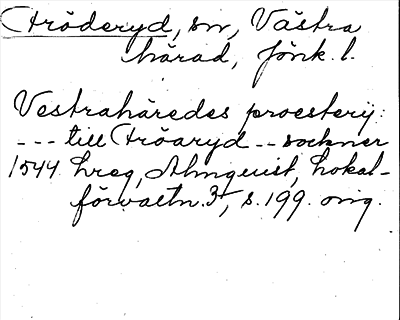 Fröderyd, sn, Västra
härad, Jönk. l.
Vestrahäredes proesterij:
--- till Fröaryd -- sockner
1544 Lreg, Almquist, Lokal-
förvaltn. 3, s. 199. orig.